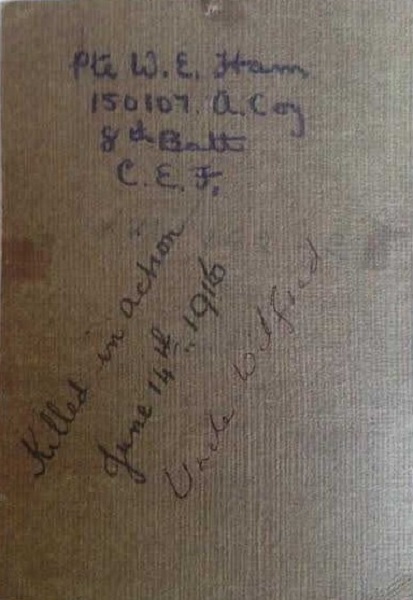 Pte W. E. Ham
150107. A. Coy
8th Batt
C. E. F.
Killed in action
June 14th. 1916
Uncle Wilfred